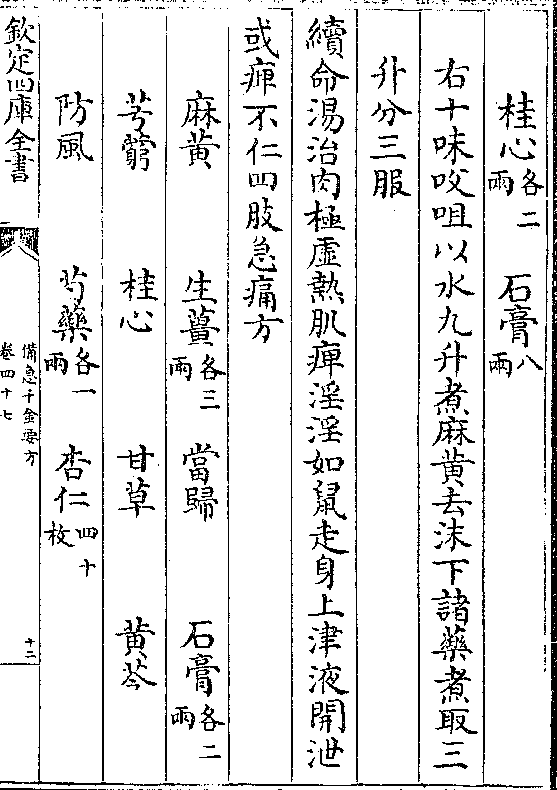 桂心各二兩　石膏八兩
右十味㕮咀以水九升煮麻黄去沫下諸藥煮取三
升分三服
續命湯治肉極虛熱肌痺淫淫如鼠走身上津液開泄
或痺不仁四肢急痛方
麻黄　生薑各三兩　當歸　石膏各二兩
芎藭　桂心　甘草　黄芩
防風　芍藥各一兩　杏仁四十枚
欽定四庫全書
備急千金要方
卷四十七
十二